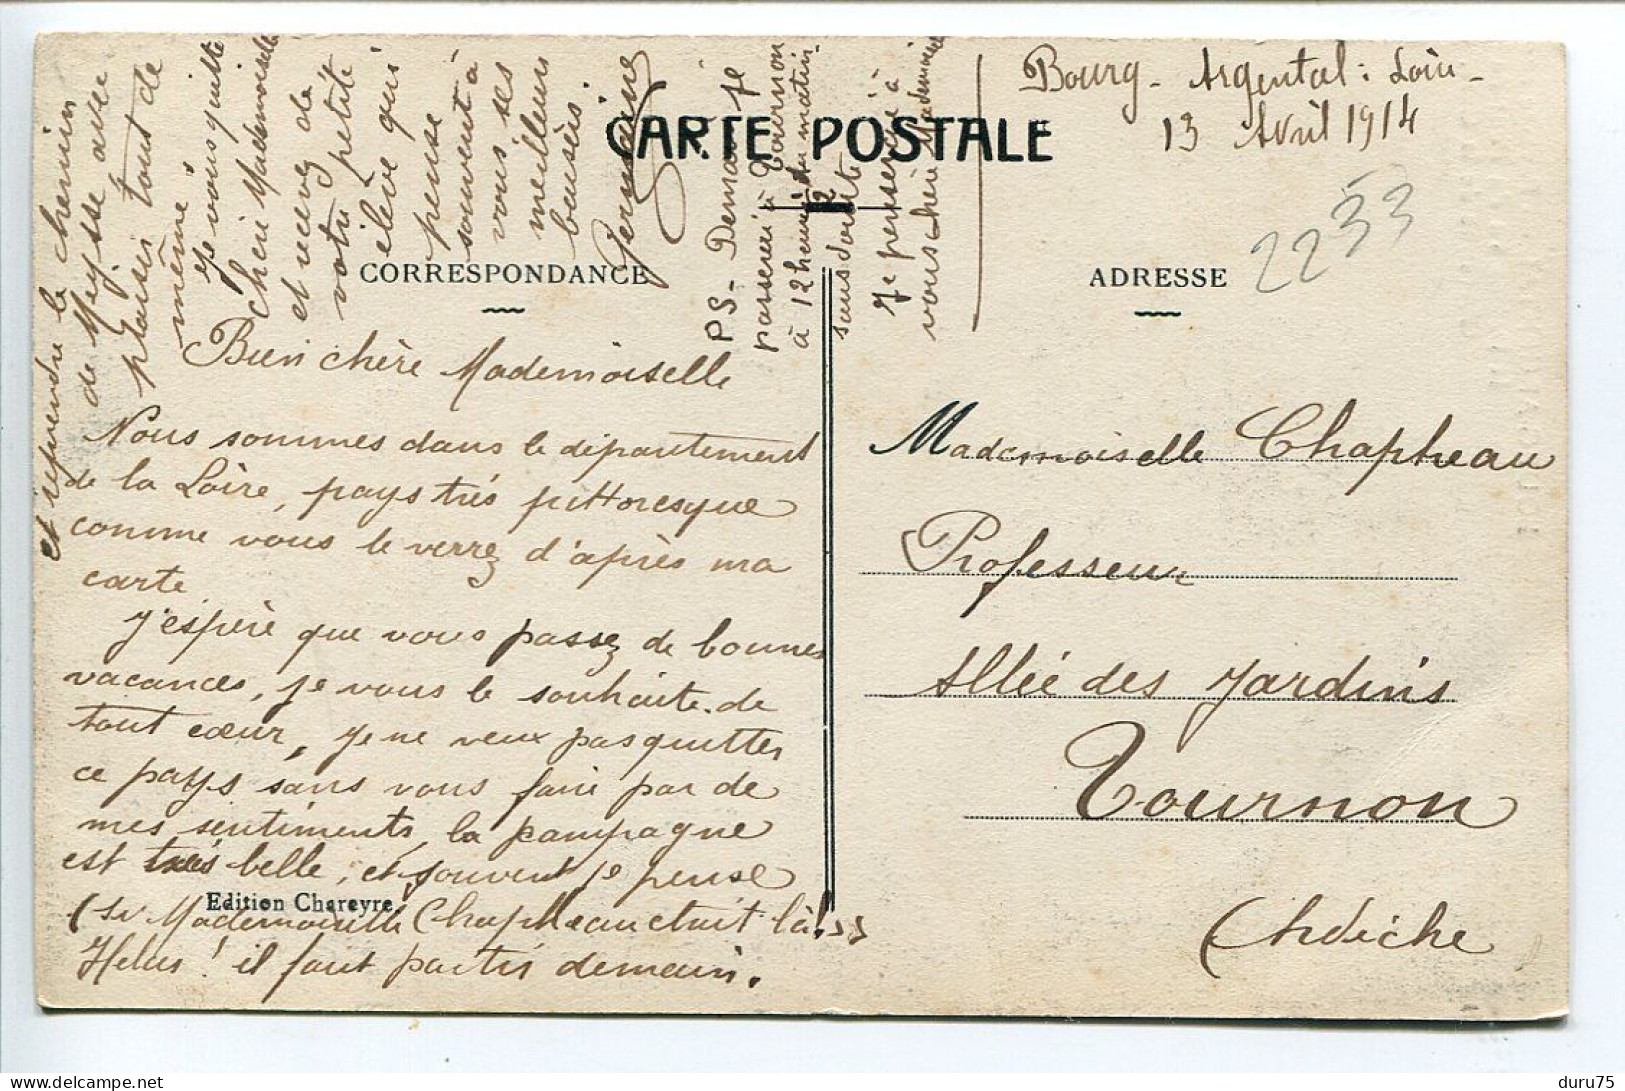 Bourg-Argental: Loire-
13 Avril 1914
2233
CARTE POSTALE
CORRESPONDANCE
ADRESSE
Bien chère Mademoiselle
Nous sommes dans le département
de la Loire, pays très pittoresque
comme vous le verrez d'après ma
carte
J'espère que vous passez de bonnes
vacances, je vous le souhaite de
tout cœur, je ne veux pas quitter
ce pays sans vous faire par de
mes sentiments, la campagne
est très belle, et souvent je pense
(si Mademoiselle Chapheau était là! >>
Helas! il faut partir demain.
et reprendre le chemin
de Meysse avec
plaisir tout de
même
Je vous quitte
Chère Mademoiselle
et recevez de
votre petite
élève qui
pense
souvent à
vous ses
meilleurs
baisers.
Germaine
PS- Demain je
passerai à Tournon
à 12 heures du matin
sans doute
Je penserai à
vous chère Mademoiselle
Edition Chareyre
Mademoiselle Chapheau
Professeur
Allée des Jardins
Tournon
(Ardèche
delcampe.net
duru75